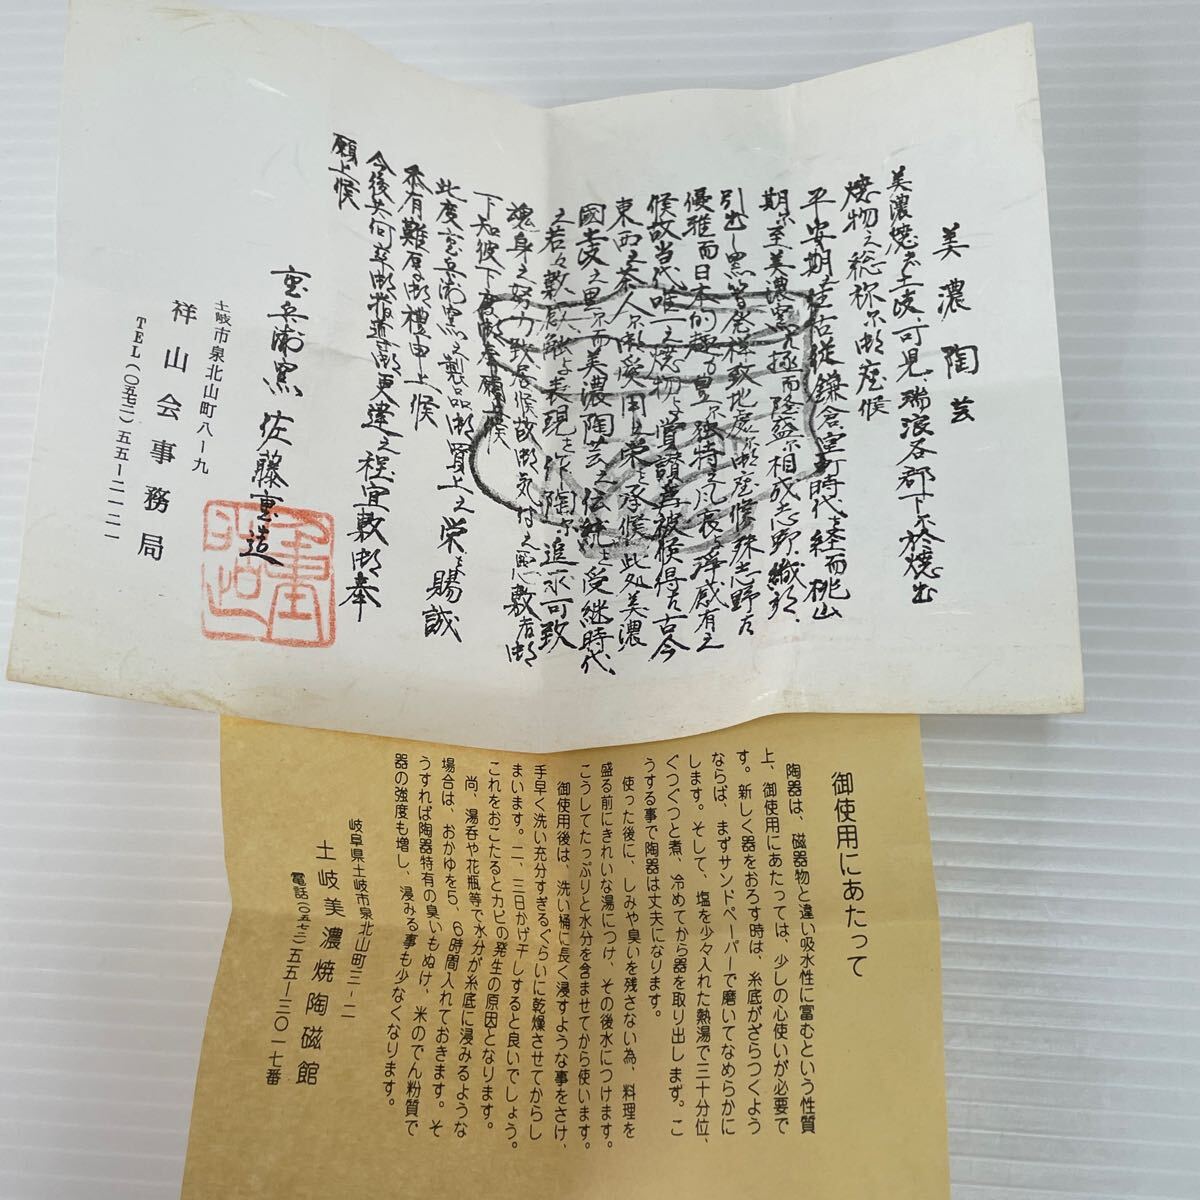 美濃陶芸
美濃焼ぎ土岐、可見、瑞浪各郡下ニ於焼出
焼物之総称ニ御座候
平安期
古従鎌倉室町時代を経而桃山
期ニ至美濃窯
極而隆盛ニ相成志野、織部、
引出し黒皆発祥致地
御座候殊志野
優雅而日本的趣
豊
独特之風衣と浮感有之
候故当代唯一之焼物と賞讃
被候得
古今
東西之茶人
御愛用之栄を承候此処美濃
國
之里
而美濃陶芸之伝統を受継時代
之若々敷感触を表現を作陶
追求可致
魂身之努力致居候故御気付之
敷者御
下知被下度
奉願
候
此度重兵衛窯之製品御買上之栄を賜誠
有難厚御禮申上候
今後共何卒御指導御更達之程宜敷御奉
願上候
重兵衛窯 佐藤重造
重造
土岐市泉北山町八ー九
祥山会事務局
TEL(〇五七二)五五ー二一二一
御使用にあたって
陶器は、磁器物と違い吸水性に富むという性質
上、御使用にあたっては、少しの心使いが必要で
す。新しく器をおろす時は、糸底がざらつくよう
ならば、まずサンドペーパーで磨いてなめらかに
します。そして、塩を少々入れた熱湯で三十分位、
ぐつぐつと煮、冷めてから器を取り出します。こ
うする事で陶器は丈夫になります。
使った後に、しみや臭いを残さない為、料理を
盛る前にきれいな湯につけ、その後水につけます。
こうしてたっぷりと水分を含ませてから使います。
御使用後は、洗い桶に長く浸すような事をさけ、
手早く洗い充分すぎるぐらいに乾燥させてからし
まいます。二、三日かげ干しすると良いでしょう。
これをおこたるとカビの発生の原因となります。
尚、湯呑や花瓶等で水分が糸底に浸みるような
場合は、おかゆを5、6時間入れておきます。そ
うすれば陶器特有の臭いもぬけ、米のでん粉質で
器の強度も増し、浸みる事も少なくなります。
岐阜県土岐市泉北山町三ー二
土岐美濃焼陶磁館
電話(〇五七二)五五ー三〇一七番